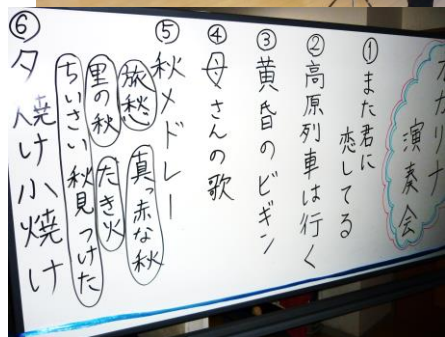 オカリナ
演奏会
①また君に
恋してる
②高原列車は行く
③黄昏のビギン
④母さんの歌
⑤秋メドレー
旅愁
真っ赤な秋
里の秋
たき火
ちいさい秋見つけた
⑥夕焼け小焼け